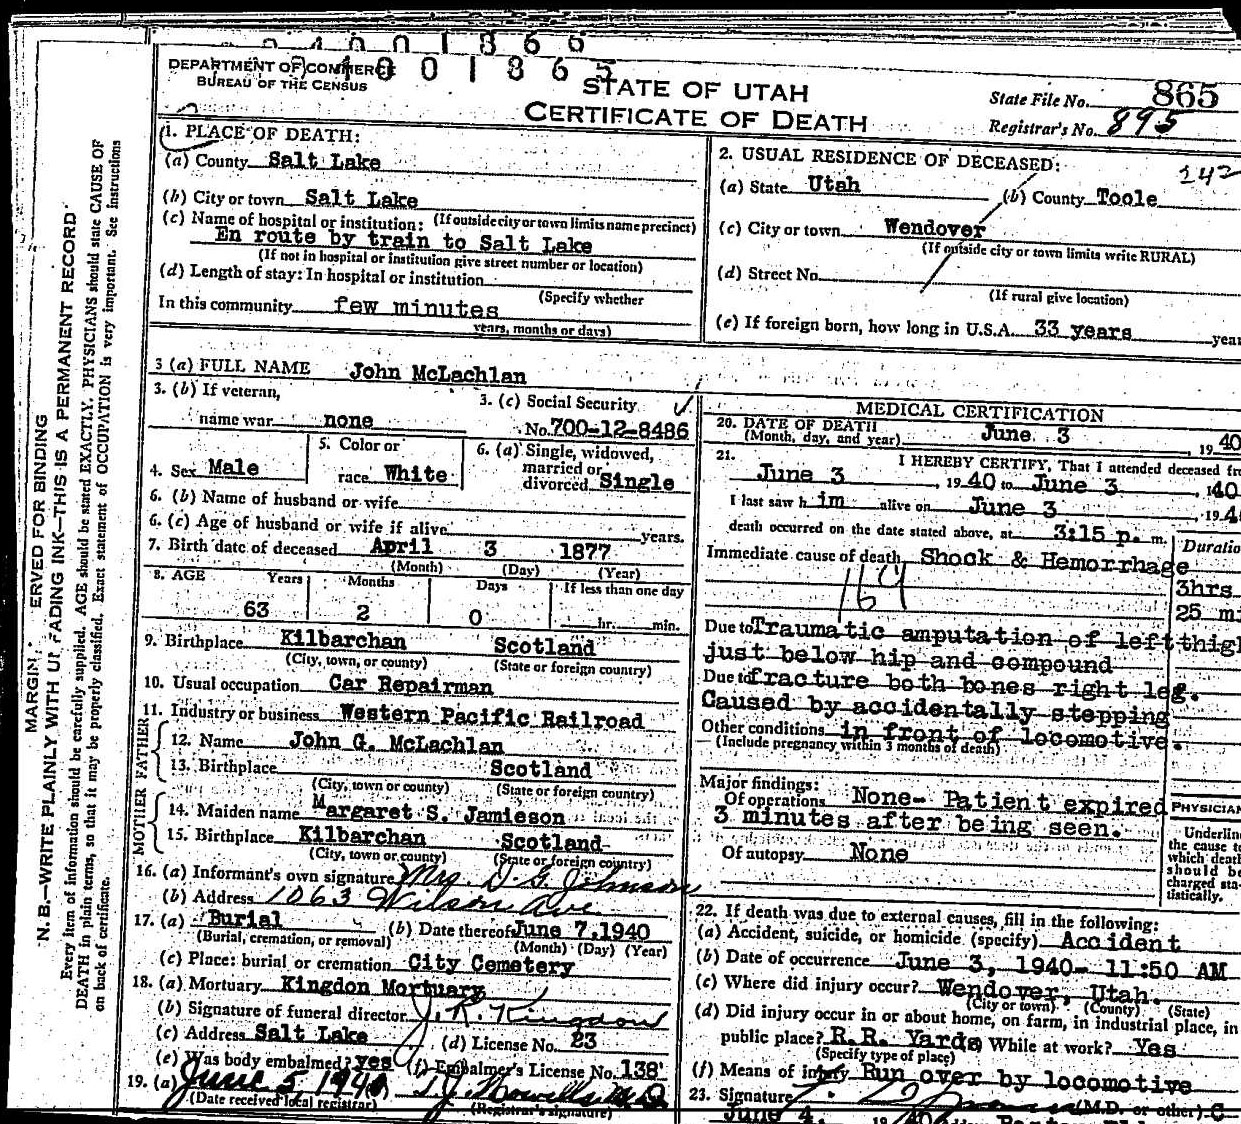 24001866
24001865
DEPARTMENT OF COMMERCE
BUREAU OF THE CENSUS
STATE OF UTAH
CERTIFICATE OF DEATH
State File No. 865
Registrar's No. 895
1. PLACE OF DEATH:
(a) County Salt Lake
(b) City or town Salt Lake
(If outside city or town limits name precinct)
(c) Name of hospital or institution:
En route by train to Salt Lake
(If not in hospital or institution give street number or location)
(d) Length of stay: In hospital or institution
(Specify whether
In this community few minutes
years, months or days)
2. USUAL RESIDENCE OF DECEASED:
242
(a) State Utah (b) County Toole
(c) City or town Wendover
(If outside city or town limits write RURAL)
(d) Street No.
(If rural give location)
(e) If foreign born, how long in U.S.A. 33 years year
3 (a) FULL NAME John McLachlan
3. (b) If veteran,
name war none
3. (c) Social Security
No. 700-12-8486
4. Sex Male
5. Color or
race White
6. (a) Single, widowed,
married or
divorced Single
6. (b) Name of husband or wife
6. (c) Age of husband or wife if alive years.
7. Birth date of deceased April 3 1877
(Month) (Day) (Year)
8. AGE Years Months Days If less than one day
63 2 0 hr. min.
9. Birthplace Kilbarchan Scotland
(City, town, or county) (State or foreign country)
10. Usual occupation Car Repairman
11. Industry or business Western Pacific Railroad
FATHER
12. Name John G. McLachlan
13. Birthplace Scotland
(City, town or county) (State or foreign country)
MOTHER
14. Maiden name Margaret S. Jamieson
15. Birthplace Kilbarchan Scotland
(City, town or county) (State or foreign country)
16. (a) Informant's own signature Mrs. D. G. Johnson
(b) Address 1063 Wilson Ave
17. (a) Burial (b) Date thereof June 7, 1940
(Burial, cremation, or removal) (Month) (Day) (Year)
(c) Place: burial or cremation City Cemetery
18. (a) Mortuary Kingdon Mortuary
(b) Signature of funeral director J. R. Kingdon
(c) Address Salt Lake (d) License No. 23
(e) Was body embalmed? yes (f) Embalmer's License No. 138
19. (a) June 5, 1940
(Date received local registrar) (Registrar's signature)
MEDICAL CERTIFICATION
20. DATE OF DEATH
(Month, day, and year) June 3 1940
21. I HEREBY CERTIFY, That I attended deceased fro
June 3, 1940 to June 3, 140
I last saw h im alive on June 3, 194
death occurred on the date stated above, at 3:15 p. m.
Duratio
Immediate cause of death Shock & Hemorrhage
3hrs
164
25 mi
Due to Traumatic amputation of left thigh
just below hip and compound
Due to fracture both bones right leg.
Caused by accidentally stepping
Other conditions in front of locomotive.
(Include pregnancy within 3 months of death)
Major findings:
Of operations None- Patient expired
3 minutes after being seen.
Of autopsy None
PHYSICIAN
Underlin
the cause to
which death
should be
charged sta-
tistically.
22. If death was due to external causes, fill in the following:
(a) Accident, suicide, or homicide (specify) Accident
(b) Date of occurrence June 3, 1940- 11:50 AM
(c) Where did injury occur? Wendover, Utah.
(City or town) (County) (State)
(d) Did injury occur in or about home, on farm, in industrial place, in
public place? R.R. Yards While at work? Yes
(Specify type of place)
(f) Means of injury Run over by locomotive
23. Signature (M.D. or other)
June 4, 1940
MARGIN ERVED FOR BINDING
N. B.—WRITE PLAINLY WITH UNFADING INK—THIS IS A PERMANENT RECORD
Every item of information should be carefully supplied. AGE should be stated EXACTLY. PHYSICIANS should state CAUSE OF
DEATH in plain terms, so that it may be properly classified. Exact statement of OCCUPATION is very important. See instructions
on back of certificate.